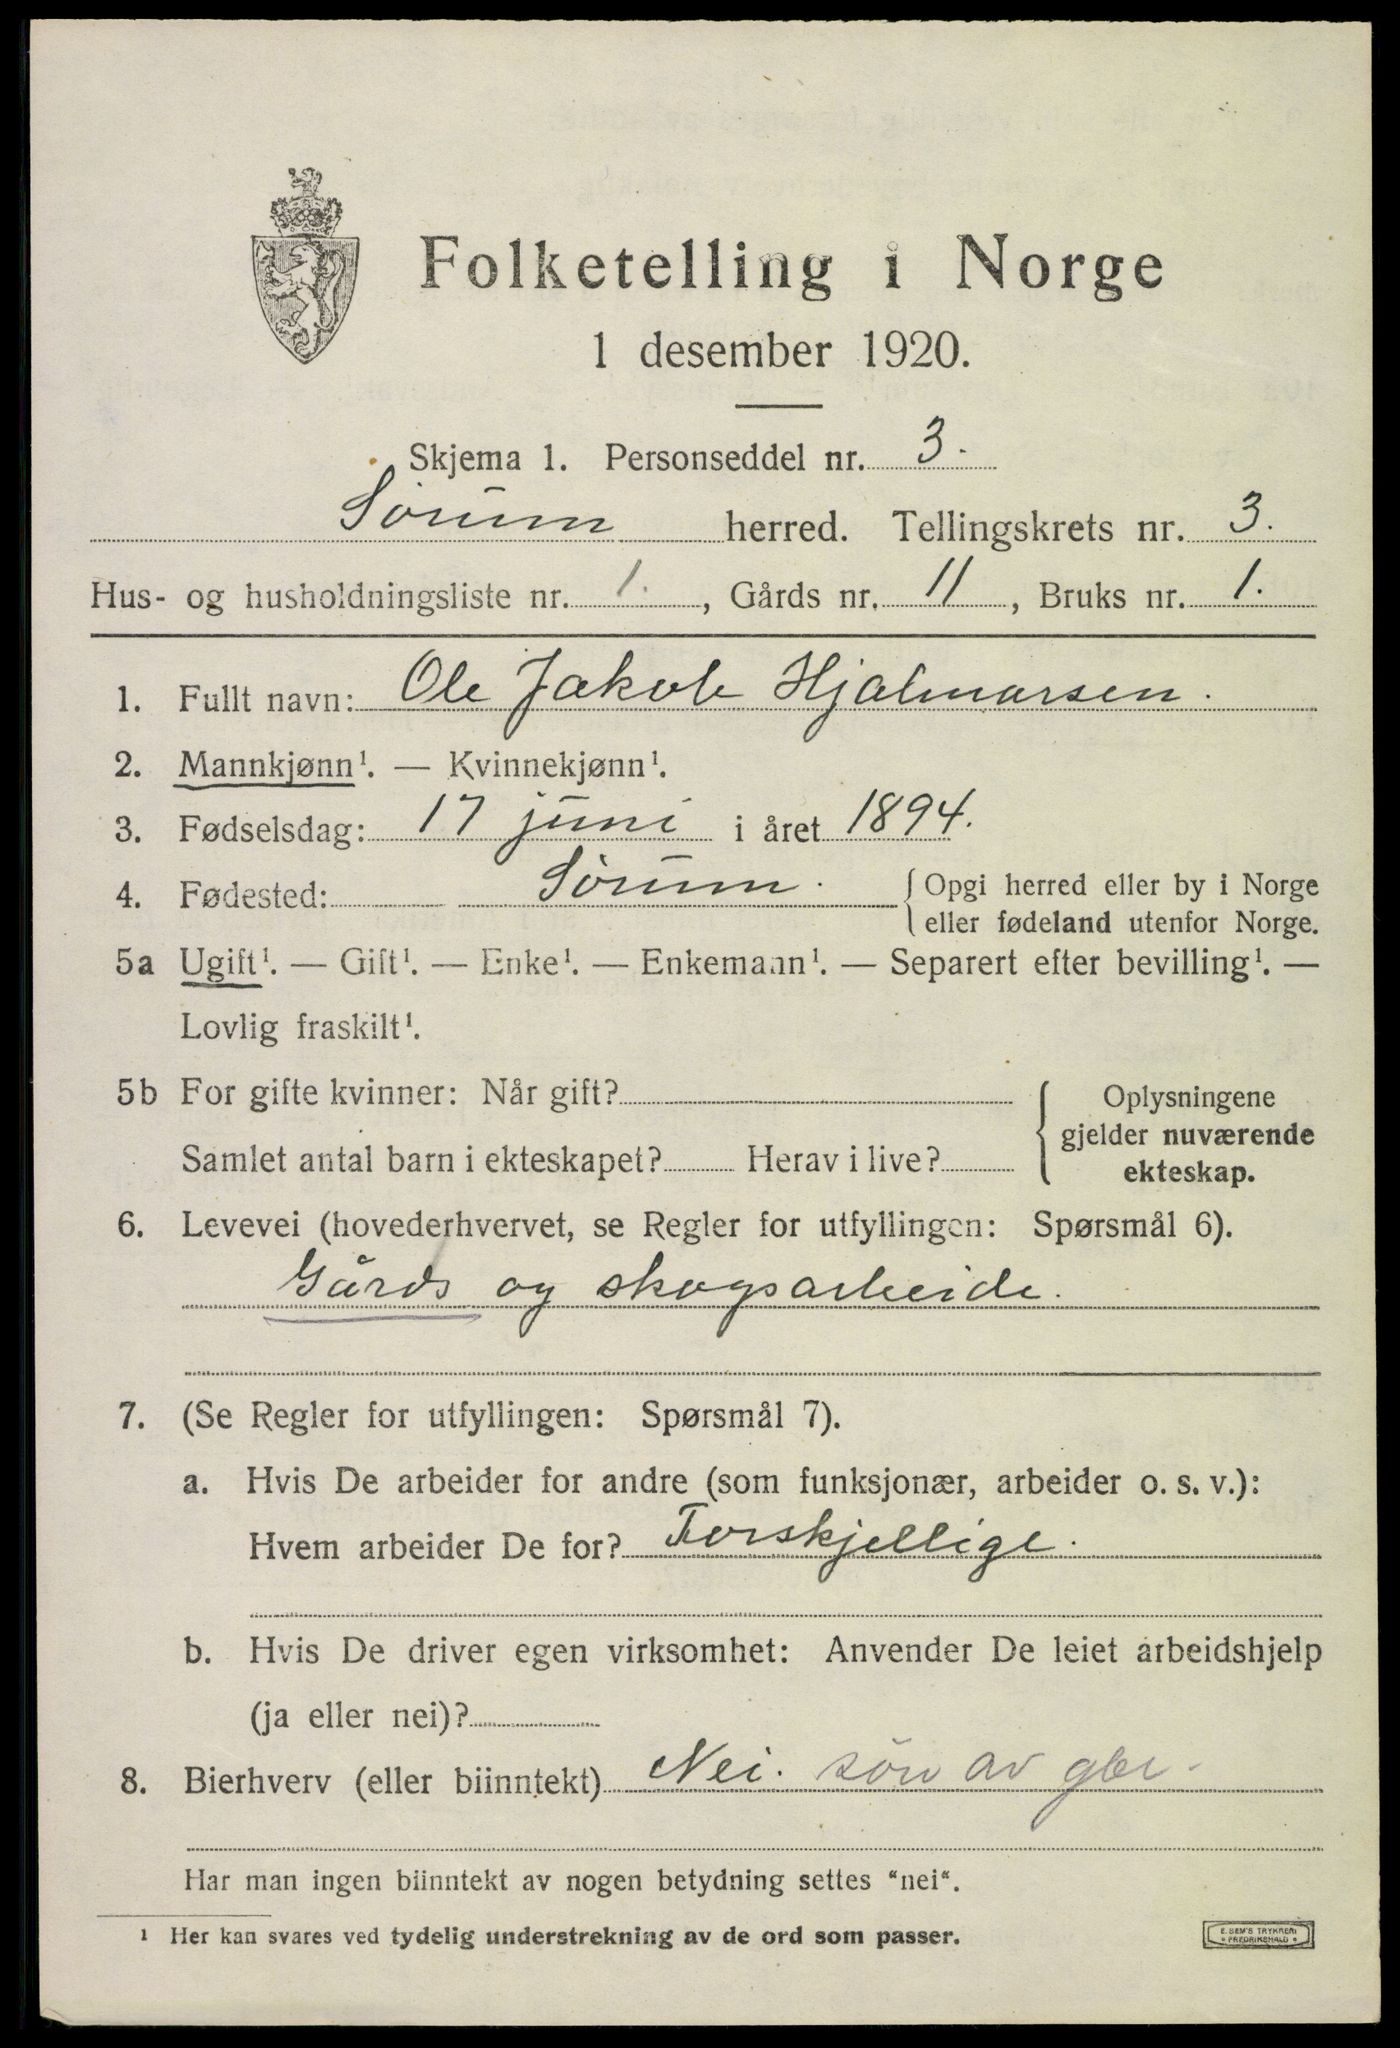 Folketelling i Norge
1 desember 1920.
Skjema 1. Personseddel nr. 3.
Sörum herred. Tellingskrets nr. 3.
Hus- og husholdningsliste nr. 1., Gårds nr. 11, Bruks nr. 1.
1. Fullt navn: Ole Jakob Hjalmarsen.
2. Mannkjønn¹. — Kvinnekjønn¹.
3. Fødselsdag: 17 juni i året 1894.
4. Fødested: Sörum. { Opgi herred eller by i Norge
eller fødeland utenfor Norge.
5a Ugift¹. — Gift¹. — Enke¹. — Enkemann¹. — Separert efter bevilling¹. —
Lovlig fraskilt¹.
5b For gifte kvinner: Når gift? { Oplysningene
gjelder nuværende
Samlet antal barn i ekteskapet? Herav i live?
ekteskap.
6. Levevei (hovederhvervet, se Regler for utfyllingen: Spørsmål 6).
Gårds og skogsarbeide.
7. (Se Regler for utfyllingen: Spørsmål 7).
a. Hvis De arbeider for andre (som funksjonær, arbeider o. s. v.):
Hvem arbeider De for? Forskjellige.
b. Hvis De driver egen virksomhet: Anvender De leiet arbeidshjelp
(ja eller nei)?
8. Bierhverv (eller biinntekt) Nei. sön av gbr.
Har man ingen biinntekt av nogen betydning settes "nei".
¹ Her kan svares ved tydelig understrekning av de ord som passer.
E. SEM'S TRYKKERI
* FREDRIKSHALD *